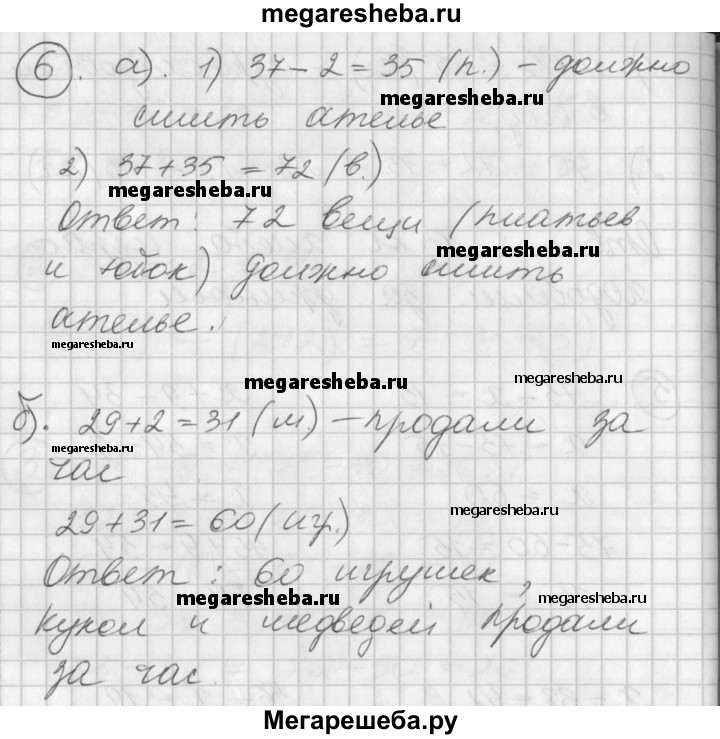 megaresheba.ru
6. а). 1) 37-2=35 (п.) - должно
megaresheba.ru
сшить ателье
2) 37+35 = 72 (в.)
megaresheba.ru
Ответ: 72 вещи (платьев
megaresheba.ru
и юбок) должно сшить
ателье.
megaresheba.ru
megaresheba.ru
megaresheba.ru
б). 29+2=31 (м) - продали за
megaresheba.ru
час
megaresheba.ru
29+31=60 (игр.)
Ответ: 60 игрушек,
megaresheba.ru
megaresheba.ru
кукол и медведей продали
за час.
megaresheba.ru
Мегарешеба.ру